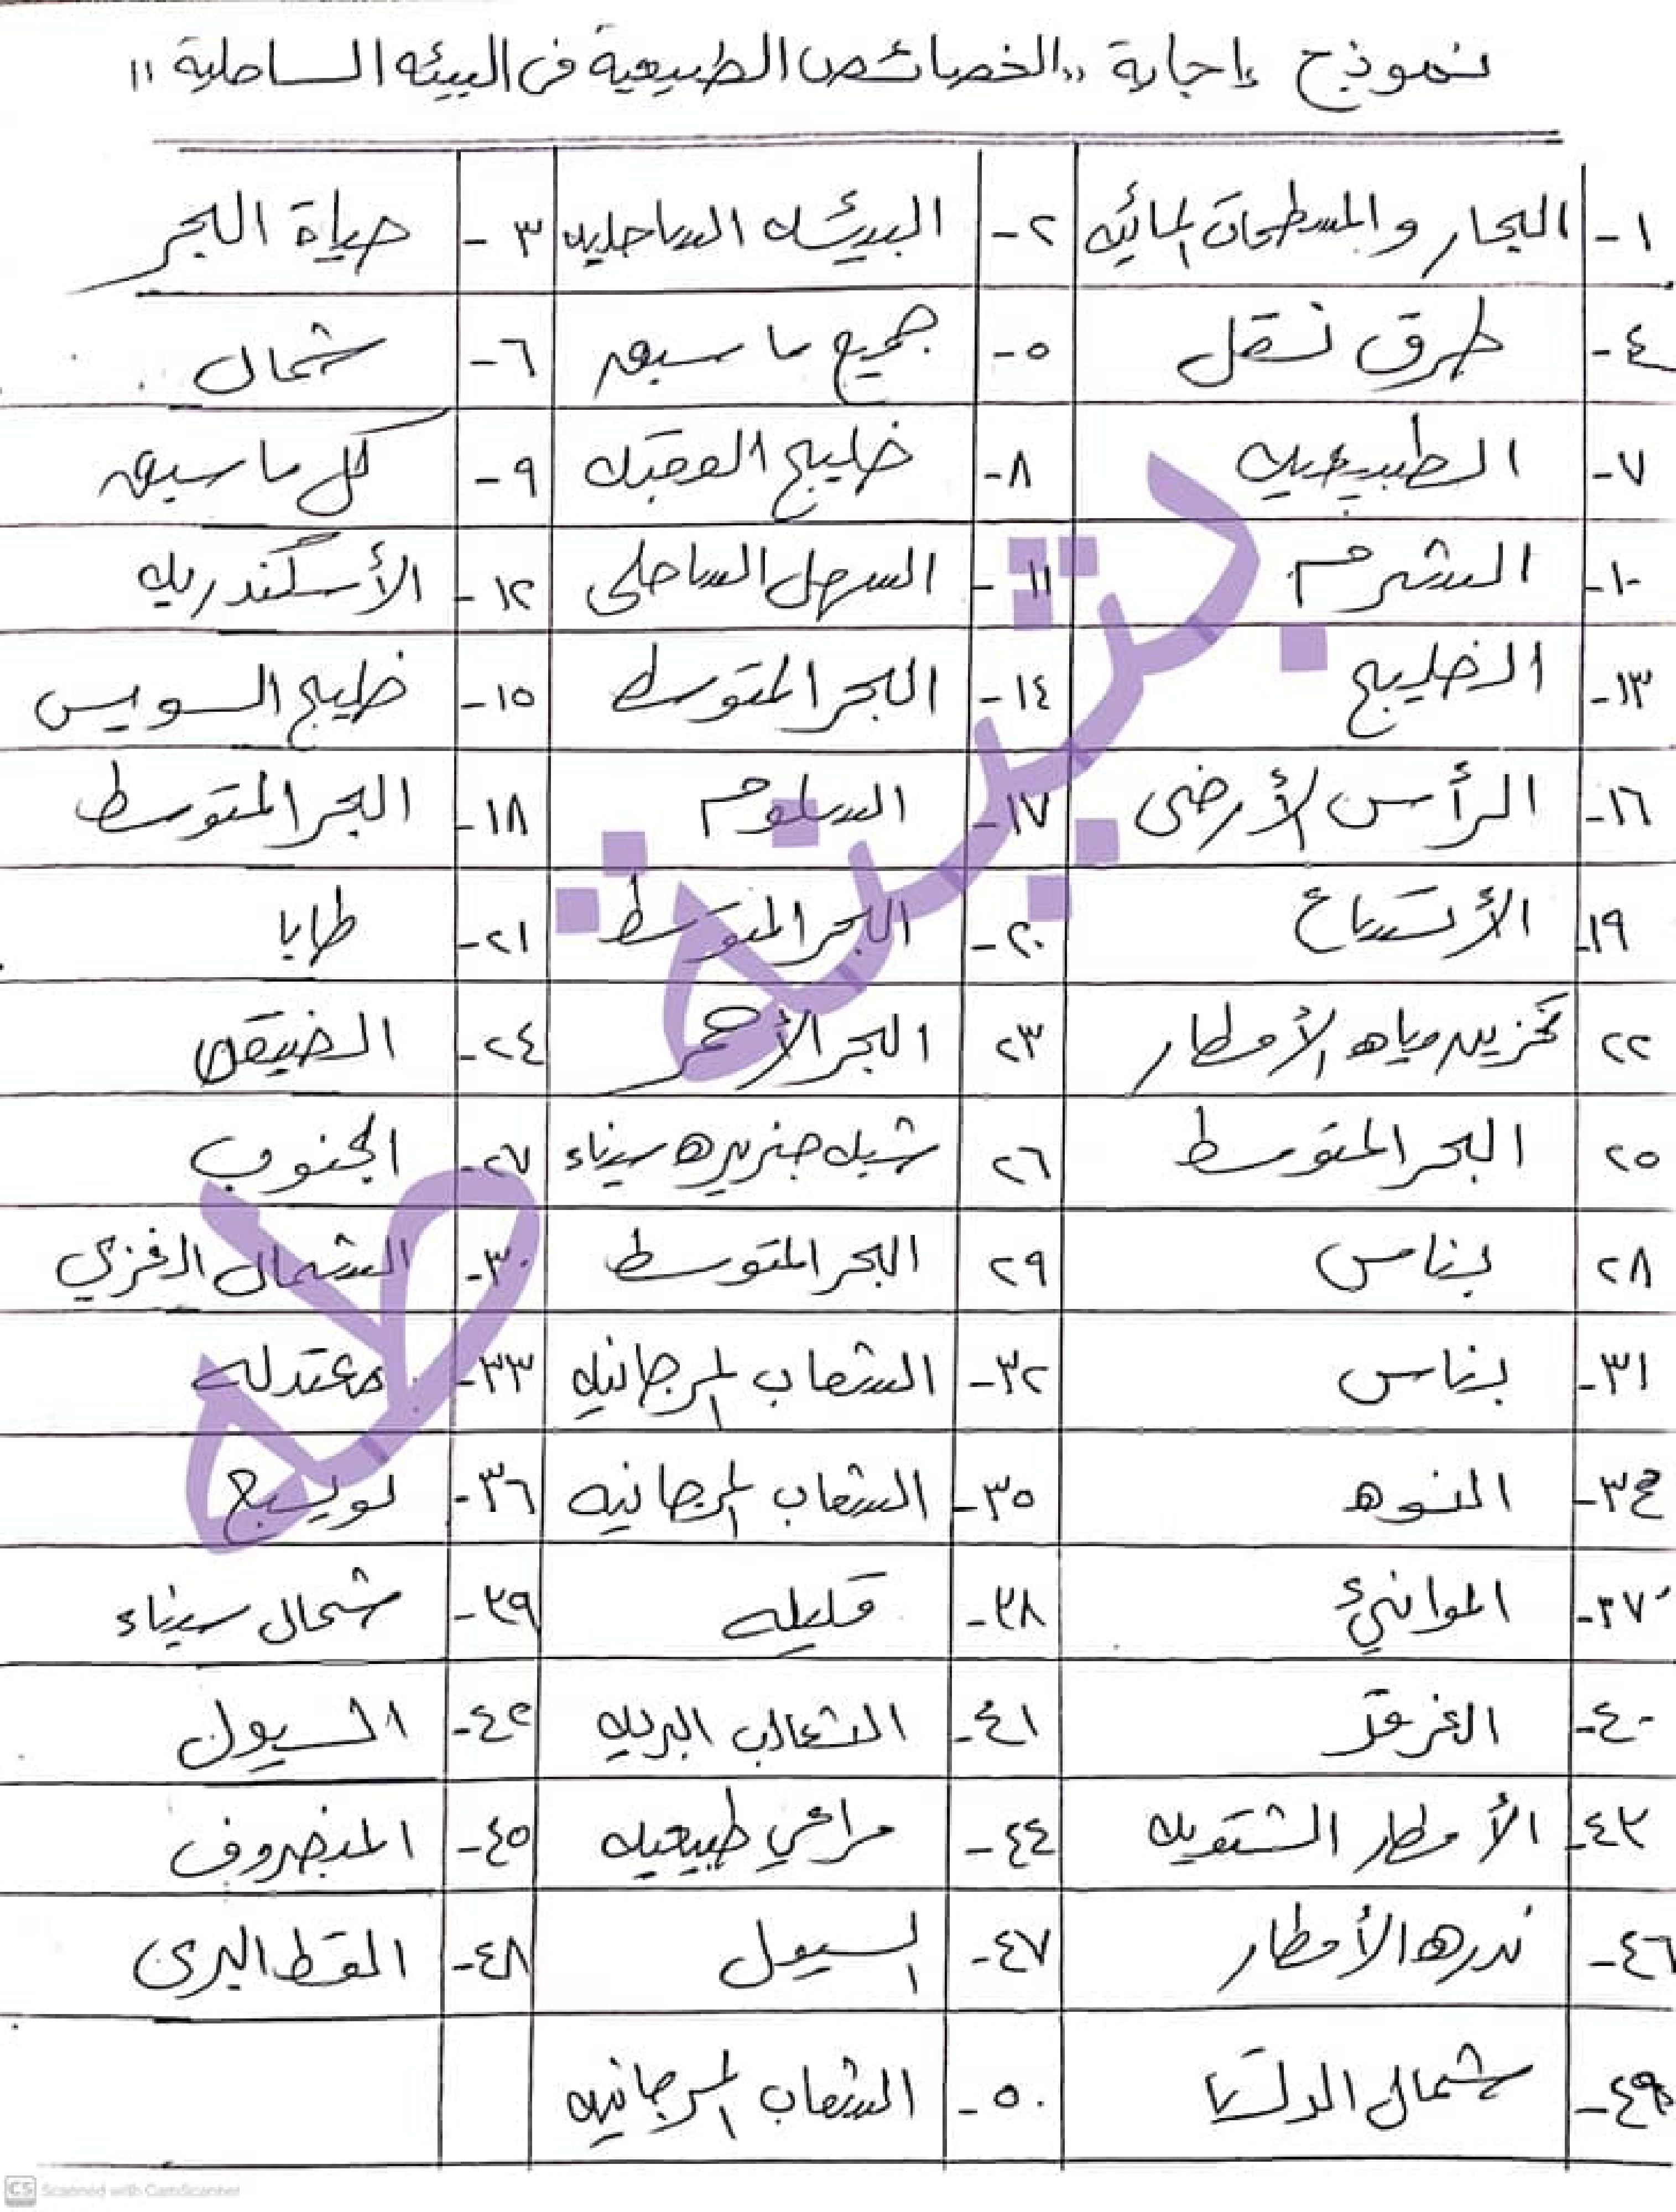 نموذج إجابة "الخصائص الطبيعية فى البيئه الساحلية"
١- البحار والمسطحات المائيه ٢- البيئه الساحليه ٣- حياة البحر
٤- طرق نقل ٥- جميع ما سبق ٦- شمال
٧- الطبيعيه ٨- خليج العقبه ٩- كل ما سبق
١٠- الشرم ١١- السهل الساحلى ١٢- الأسكندريه
١٣- الخليج ١٤- البحر المتوسط ١٥- خليج السويس
١٦- الرأس الأرضى ١٧- السلوم ١٨- البحر المتوسط
١٩- الأتساع ٢٠- البحر المتوسط ٢١- طابا
٢٢ تخزين مياه الأمطار ٢٣ البحر الأحمر ٢٤- الضيقه
٢٥ البحر المتوسط ٢٦ شبه جزيره سيناء ٢٧- الجنوب
٢٨ بناس ٢٩ البحر المتوسط ٣٠- الشمال الغربي
٣١- بناس ٣٢- الشعاب المرجانيه ٣٣- معتدله
٣٤- المنوه ٣٥- الشعاب المرجانيه ٣٦- نويبع
٣٧- الموانئ ٣٨- قليله ٣٩- شمال سيناء
٤٠- الغرقد ٤١- الثعالب البريه ٤٢- السيول
٤٣- الأمطار الشتويه ٤٤- مراعي طبيعيه ٤٥-
٤٦- ندره الأمطار ٤٧- السيول ٤٨- القط البرى
٤٩- شمال الدلتا ٥٠- الشعاب المرجانيه
CS Scanned with CamScanner